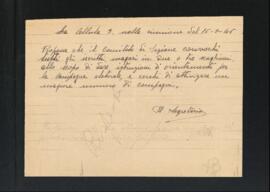 La Cellula 9. nella riunione del 15-9-45
Propone che il comitato di Sezione convochi
tutti gli iscritti magari in due o tre riunioni
allo scopo di dare istruzioni di orientamento per
la campagna elettorale e cerchi di attingere un
maggiore numero di compagni.
Il Segretario